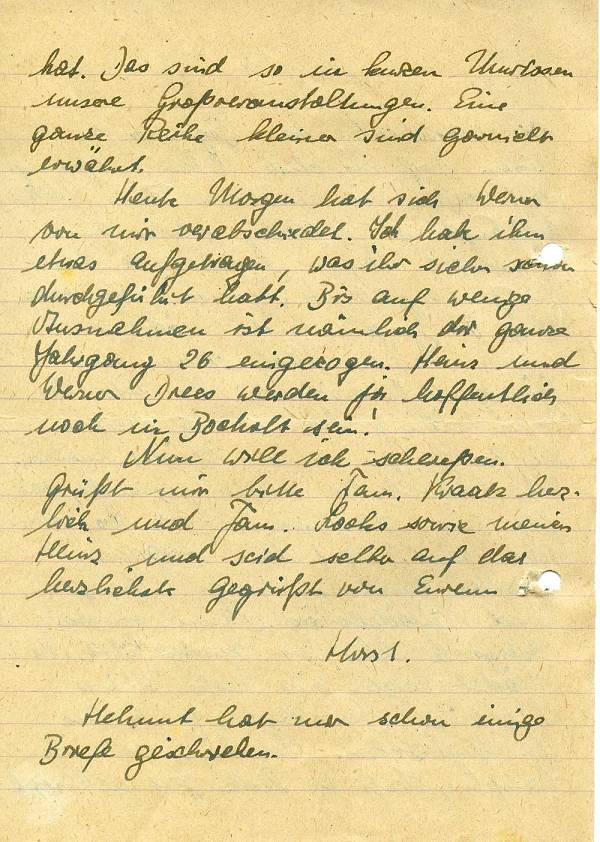 hat. Das sind so in kurzen Umrissen
unsere Großveranstaltungen. Eine
ganze Reihe kleiner sind garnicht
erwähnt.
Heute Morgen hat sich Werner
von mir verabschiedet. Ich hab ihm
etwas aufgetragen, was ihr sicher schon
durchgeführt habt. Bis auf wenige
Ausnahmen ist nämlich der ganze
Jahrgang 26 eingezogen. Heinz und
Werner Drees werden ja hoffentlich
noch in Bocholt sein!
Nun will ich schließen.
Grüßt mir bitte Fam. Kraatz herz-
lich und Fam. sowie meinen
Heinz und seid selber auf das
herzlichste gegrüßt von Eurem
Horst.
Helmut hat mir schon einige
Briefe geschrieben.